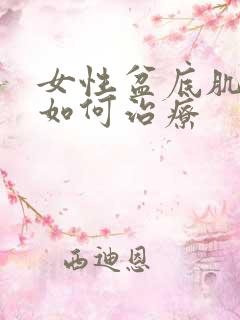 女性盆底肌
如何治療
西迪恩